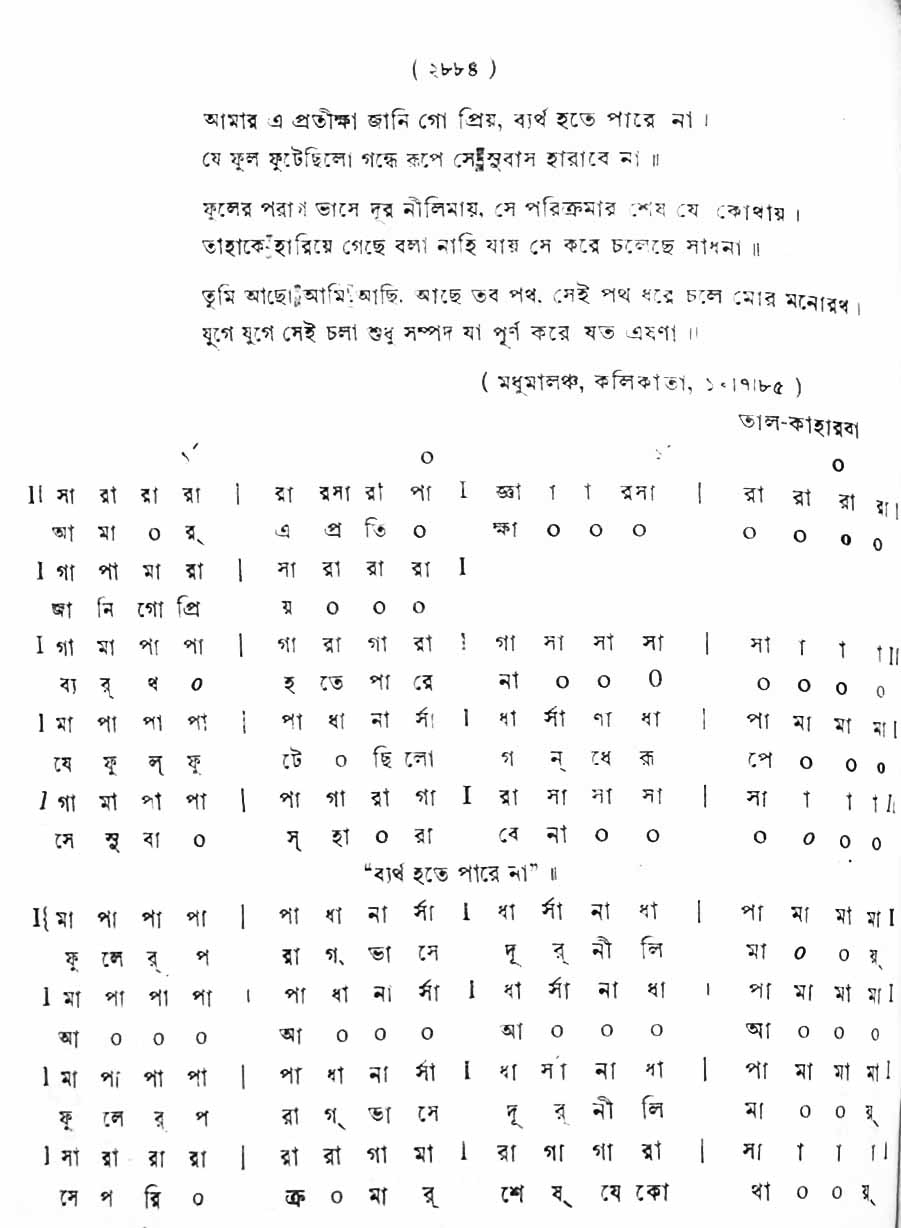 ( ২৮৮৪ )
আমার এ প্রতীক্ষা জানি গো প্রিয়, ব্যর্থ হতে পারে না ।
যে ফুল ফুটেছিলো গন্ধে রূপে সে সুবাস হারাবে না ॥
ফুলের পরাগ ভাসে দূর নীলিমায়, সে পরিক্রমার শেষ যে কোথায় ।
তাহাকে হারিয়ে গেছে বলা নাহি যায় সে করে চলেছে সাধনা ॥
তুমি আছো আমি আছি, আছে তব পথ, সেই পথ ধরে চলে মোর মনোরথ ।
যুগে যুগে সেই চলা শুধু সম্পদ যা পূর্ণ করে যত এষণা ॥
( মধুমালঞ্চ, কলিকাতা, ১০।৭।৮৫ )
তাল-কাহারবা
১´ ০ ১´ ০
II সা রা রা রা | রা রসা রা পা I জ্ঞা া া রসা | রা রা রা রা I
আ মা ০ র্ এ প্র তি ০ ক্ষা ০ ০ ০ ০ ০ ০ ০
I গা পা মা রা | সা রা রা রা I
জা নি গো প্রি য় ০ ০ ০
I গা মা পা পা | গা রা গা রা I গা সা সা সা | সা া া া II
ব্য র্ থ ০ হ তে পা রে না ০ ০ ০ ০ ০ ০ ০
I মা পা পা পা | পা ধা না র্সা I ধা র্সা ণা ধা | পা মা মা মা I
যে ফু ল্ ফু টে ০ ছি লো গ ন্ ধে রূ পে ০ ০ ০
I গা মা পা পা | পা গা রা গা I রা সা সা সা | সা া া া I
সে সু বা ০ স্ হা ০ রা বে না ০ ০ ০ ০ ০ ০
“ব্যর্থ হতে পারে না” ॥
I{ মা পা পা পা | পা ধা না র্সা I ধা র্সা না ধা | পা মা মা মা I
ফু লে র্ প রা গ্ ভা সে দূ র্ নী লি মা ০ ০ য়্
I মা পা পা পা । পা ধা না র্সা I ধা র্সা না ধা । পা মা মা মা I
আ ০ ০ ০ আ ০ ০ ০ আ ০ ০ ০ আ ০ ০ ০
I মা পা পা পা | পা ধা না র্সা I ধা র্সা না ধা | পা মা মা মা I
ফু লে র্ প রা গ্ ভা সে দূ র্ নী লি মা ০ ০ য়্
I সা রা রা রা | রা রা গা মা I রা গা গা রা | সা া া া I
সে প রি ০ ক্র ০ মা র্ শে ষ্ যে কো থা ০ ০ য়্